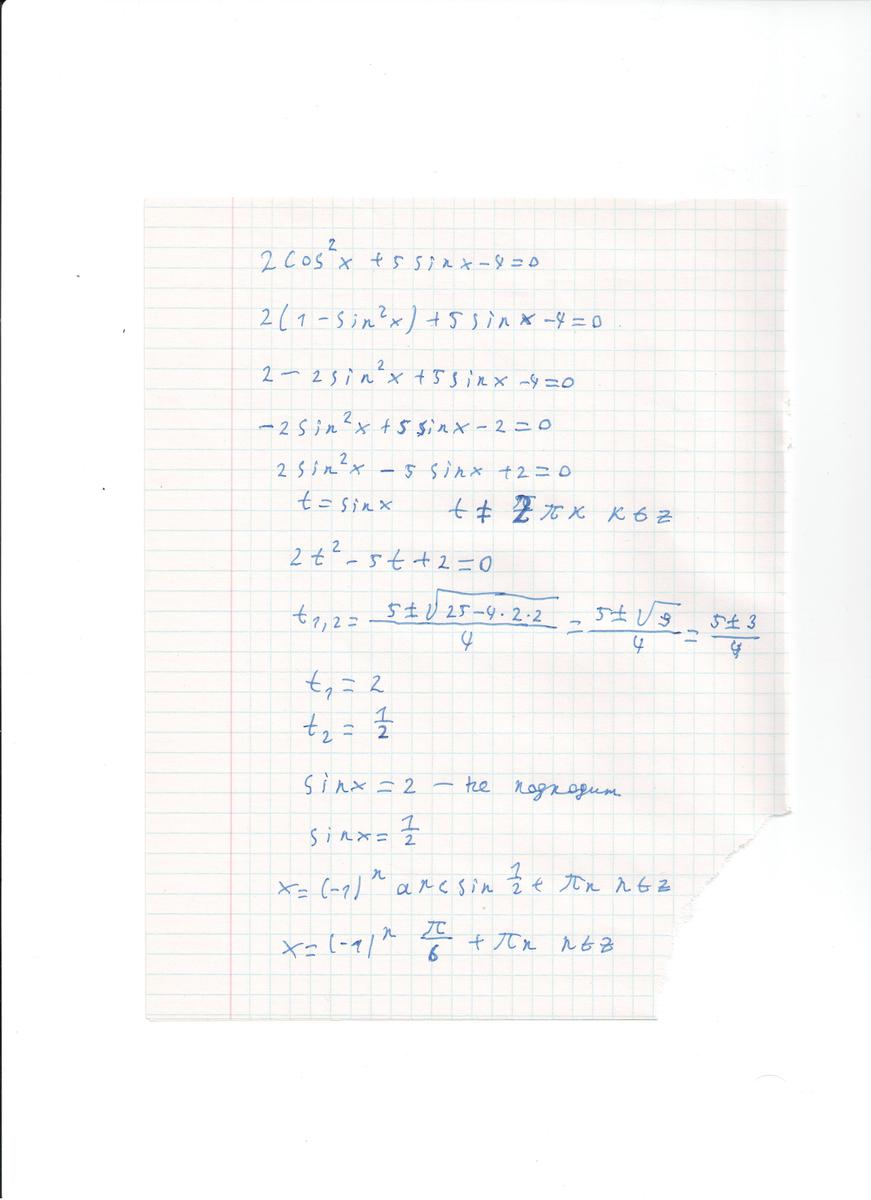 2 cos²x + 5 sinx - 4 = 0
2(1 - sin²x) + 5 sinx - 4 = 0
2 - 2 sin²x + 5 sinx - 4 = 0
-2 sin²x + 5 sinx - 2 = 0
2 sin²x - 5 sinx + 2 = 0
t = sinx t ≠ πk k ∈ z
2t² - 5t + 2 = 0
t₁,₂ = (5 ± √(25 - 4 · 2 · 2))/4 = (5 ± √9)/4 = (5 ± 3)/4
t₁ = 2
t₂ = 1/2
sinx = 2 - не подходит
sinx = 1/2
x = (-1)ⁿ arcsin 1/2 + πn n ∈ z
x = (-1)ⁿ π/6 + πn n ∈ z